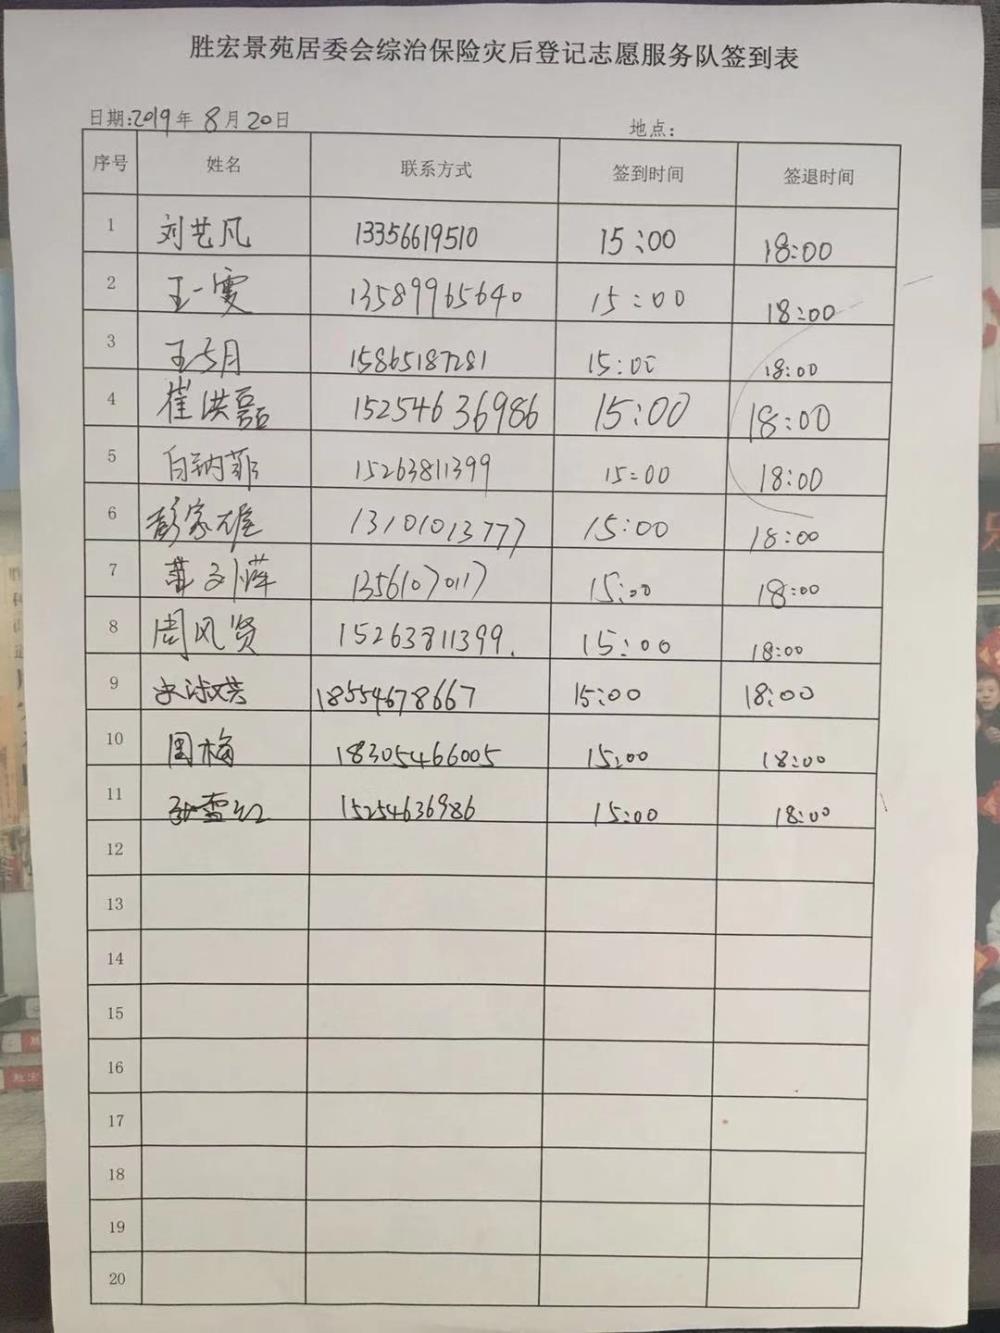 胜宏景苑居委会综治保险灾后登记志愿服务队签到表
日期:2019年8月20日 地点:
序号 姓名 联系方式 签到时间 签退时间
1 刘艺凡 13356619510 15:00 18:00
2 王一雯 13589965640 15:00 18:00
3 王与月 15865187281 15:00 18:00
4 崔洪磊 15254636986 15:00 18:00
5 白纳菲 15263811399 15:00 18:00
6 彭家雄 13101013777 15:00 18:00
7 13561070117 15:00 18:00
8 周风贤 15263811399. 15:00 18:00
9 18554678667 15:00 18:00
10 周梅 18305466005 15:00 18:00
11 15254636986 15:00 18:00
12
13
14
15
16
17
18
19
20